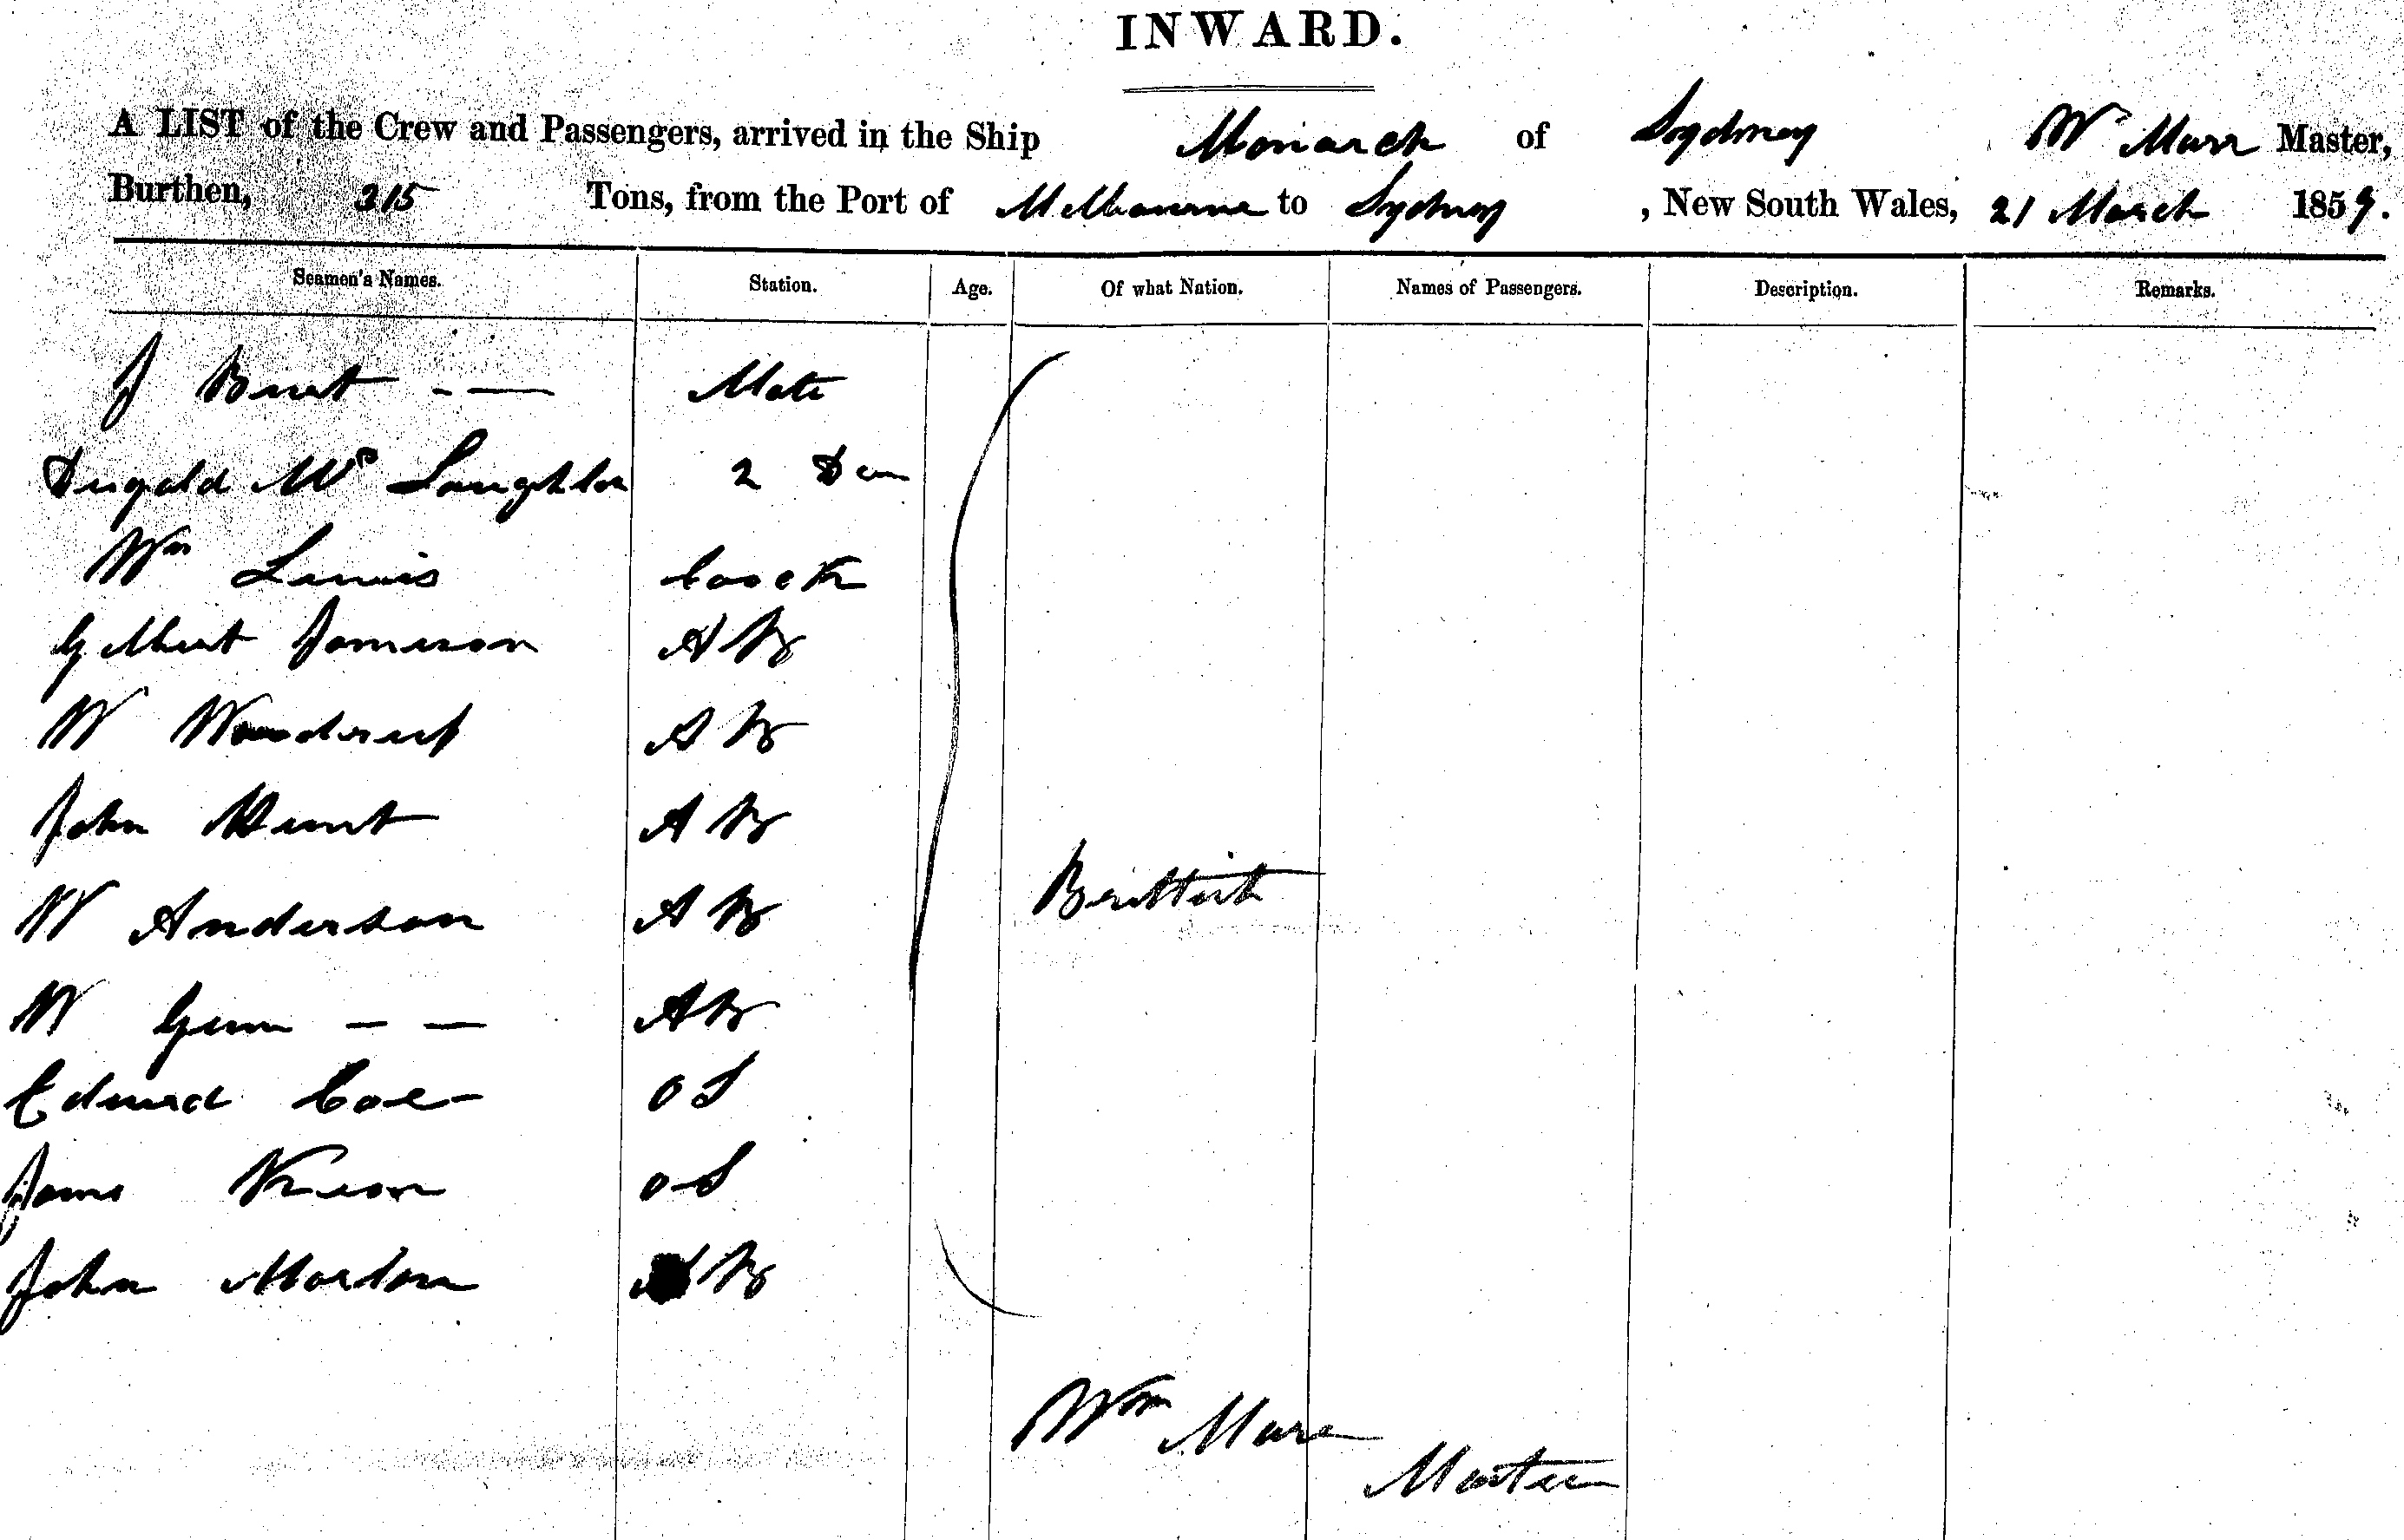 INWARD.
A LIST of the Crew and Passengers, arrived in the Ship Monarch of Sydney Wm Marr Master,
Burthen, 315 Tons, from the Port of Melbourne to Sydney, New South Wales, 21 March 1859.
Seamen's Names. Station. Age. Of what Nation. Names of Passengers. Description. Remarks.
J Burt - — Mate
Dugald Mc Laughlon 2 Do
Wm Coock
Gilbert Jameson AB
W AB
John Hunt AB
W Anderson AB
Brittish
W Gunn - — AB
Edward Coe OS
James OS
John Morton AB
Wm Marr
Master